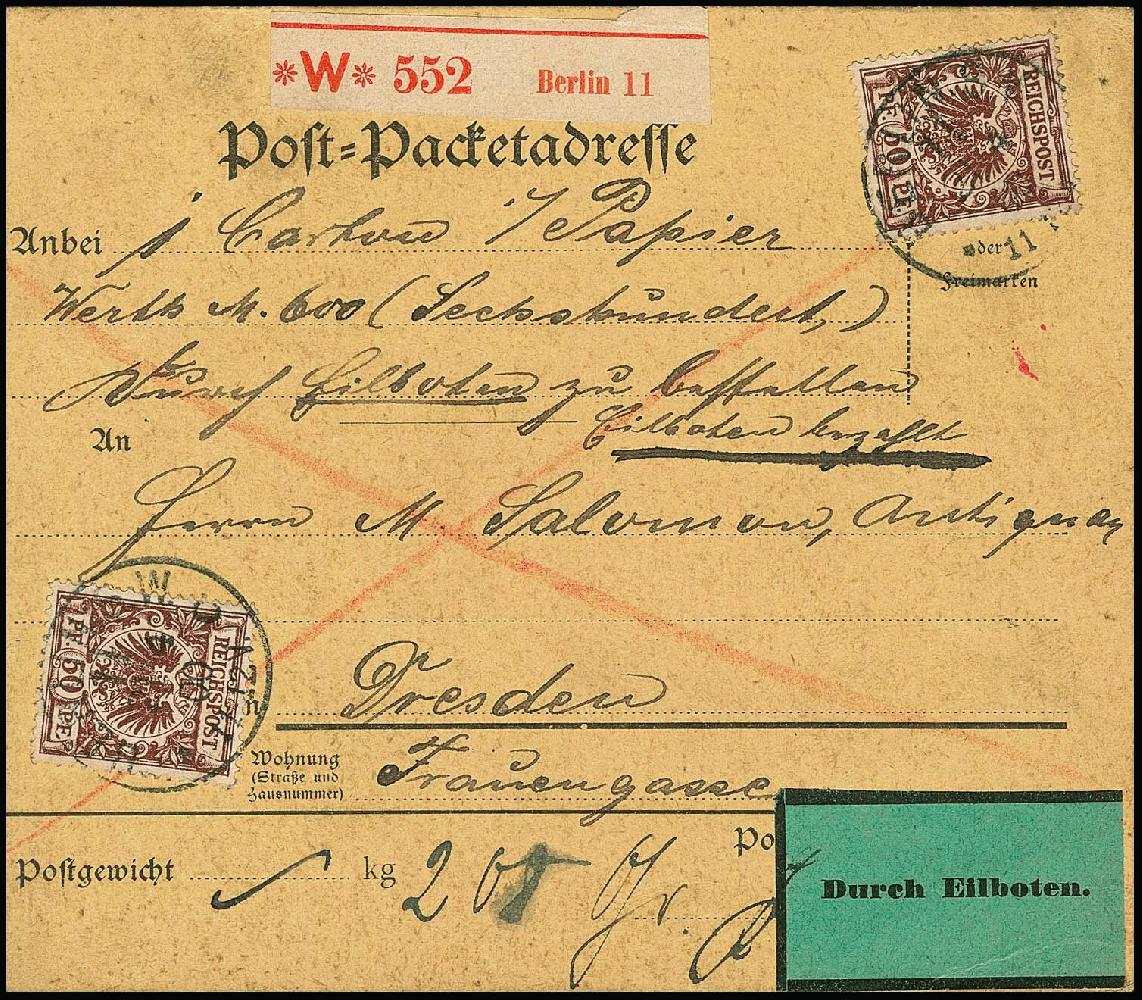 *W* 552 Berlin 11
Post=Packetadresse
REICHSPOST
PF. 50 PF.
Anbei 1 Carton i/ Papier
oder
11
Freimarken
Werth M. 600 (Sechshundert,)
Durch Eilboten zu bestellen
Eilboten bezahlt
An
Herrn M. Salomon, Antiquar
REICHSPOST
PF. 50 PF.
Dresden
Wohnung
(Straße und
Hausnummer)
Frauengasse
Postgewicht kg 20 Gr.
Po
Durch Eilboten.